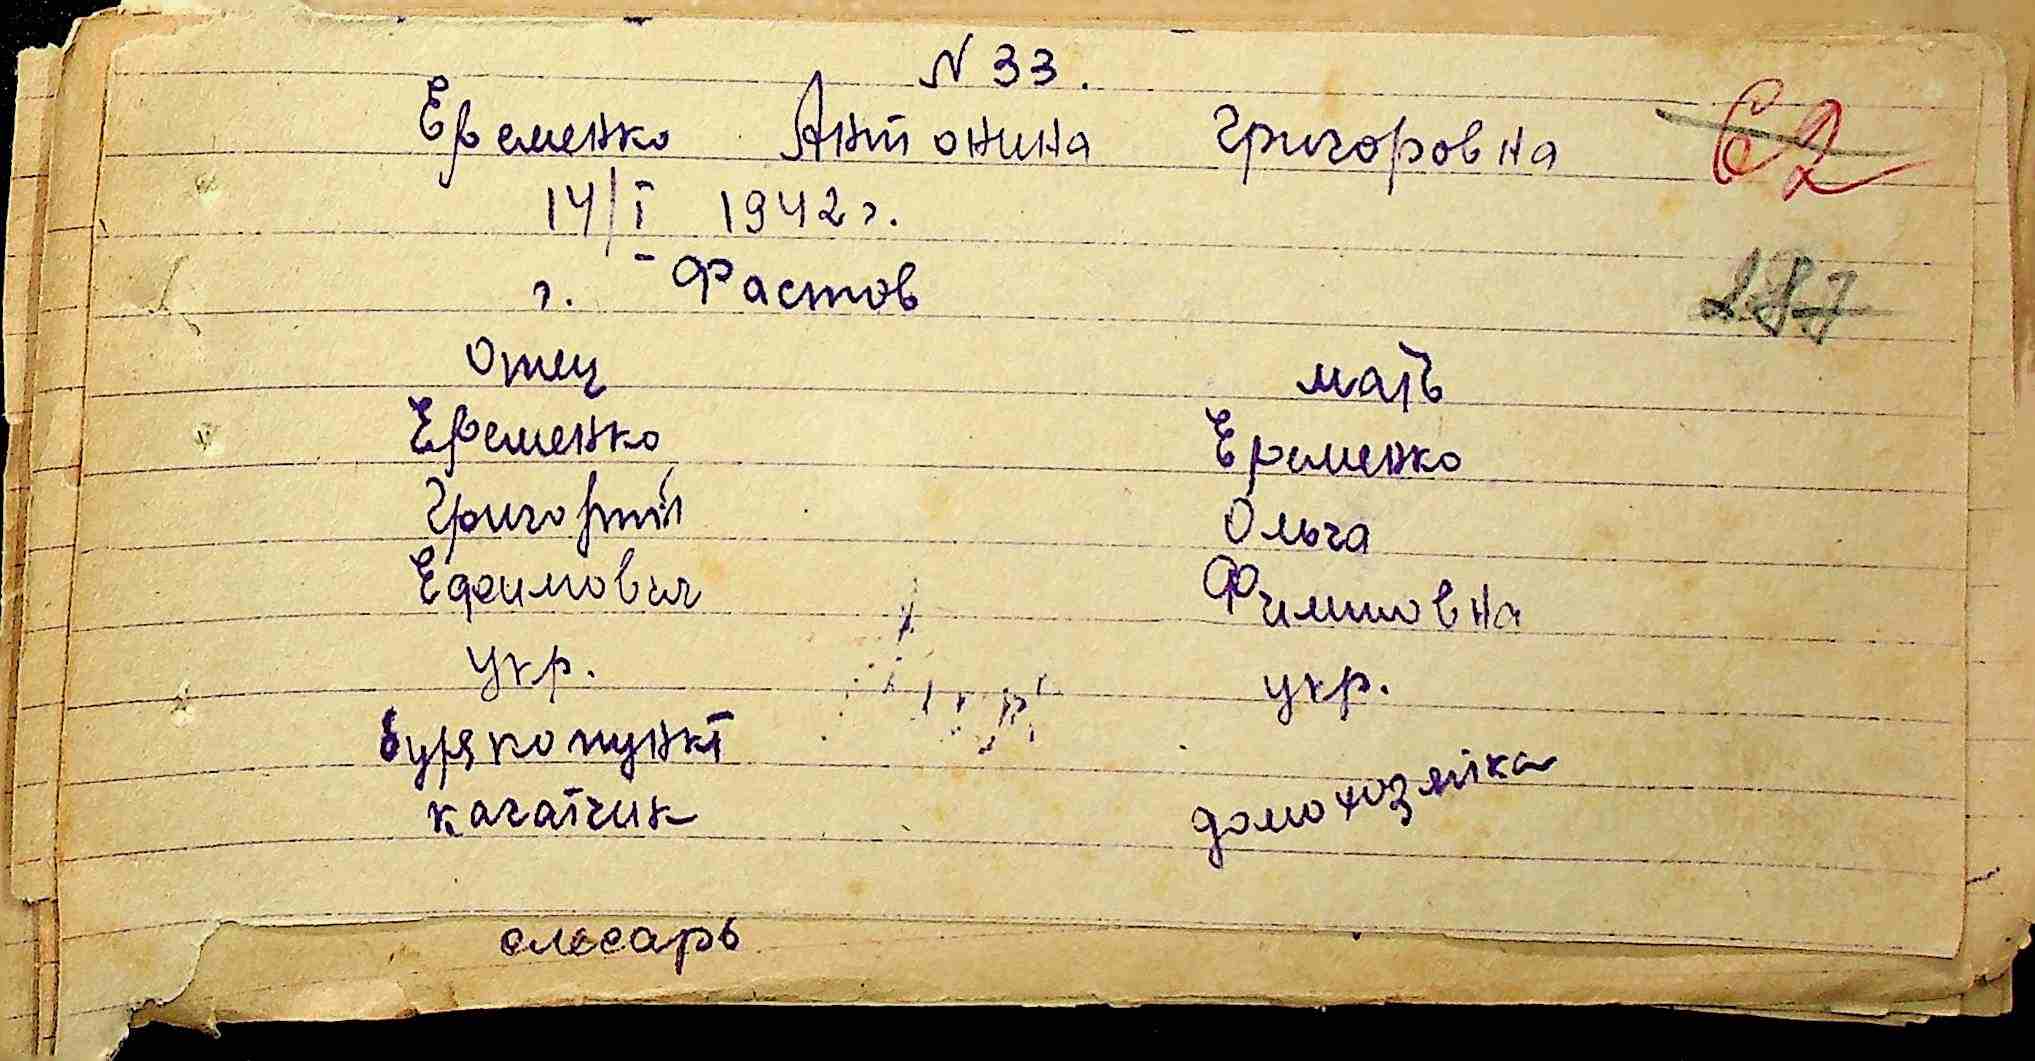 N 33.
Еременко Антонина Григоровна
14/I 1942 г.
г. Фастов
Отец мать
Еременко Еременко
Григорий Ольга
Ефимович Фимиовна
укр. укр.
бурякопункт
качатчик домохозяйка
слесарь